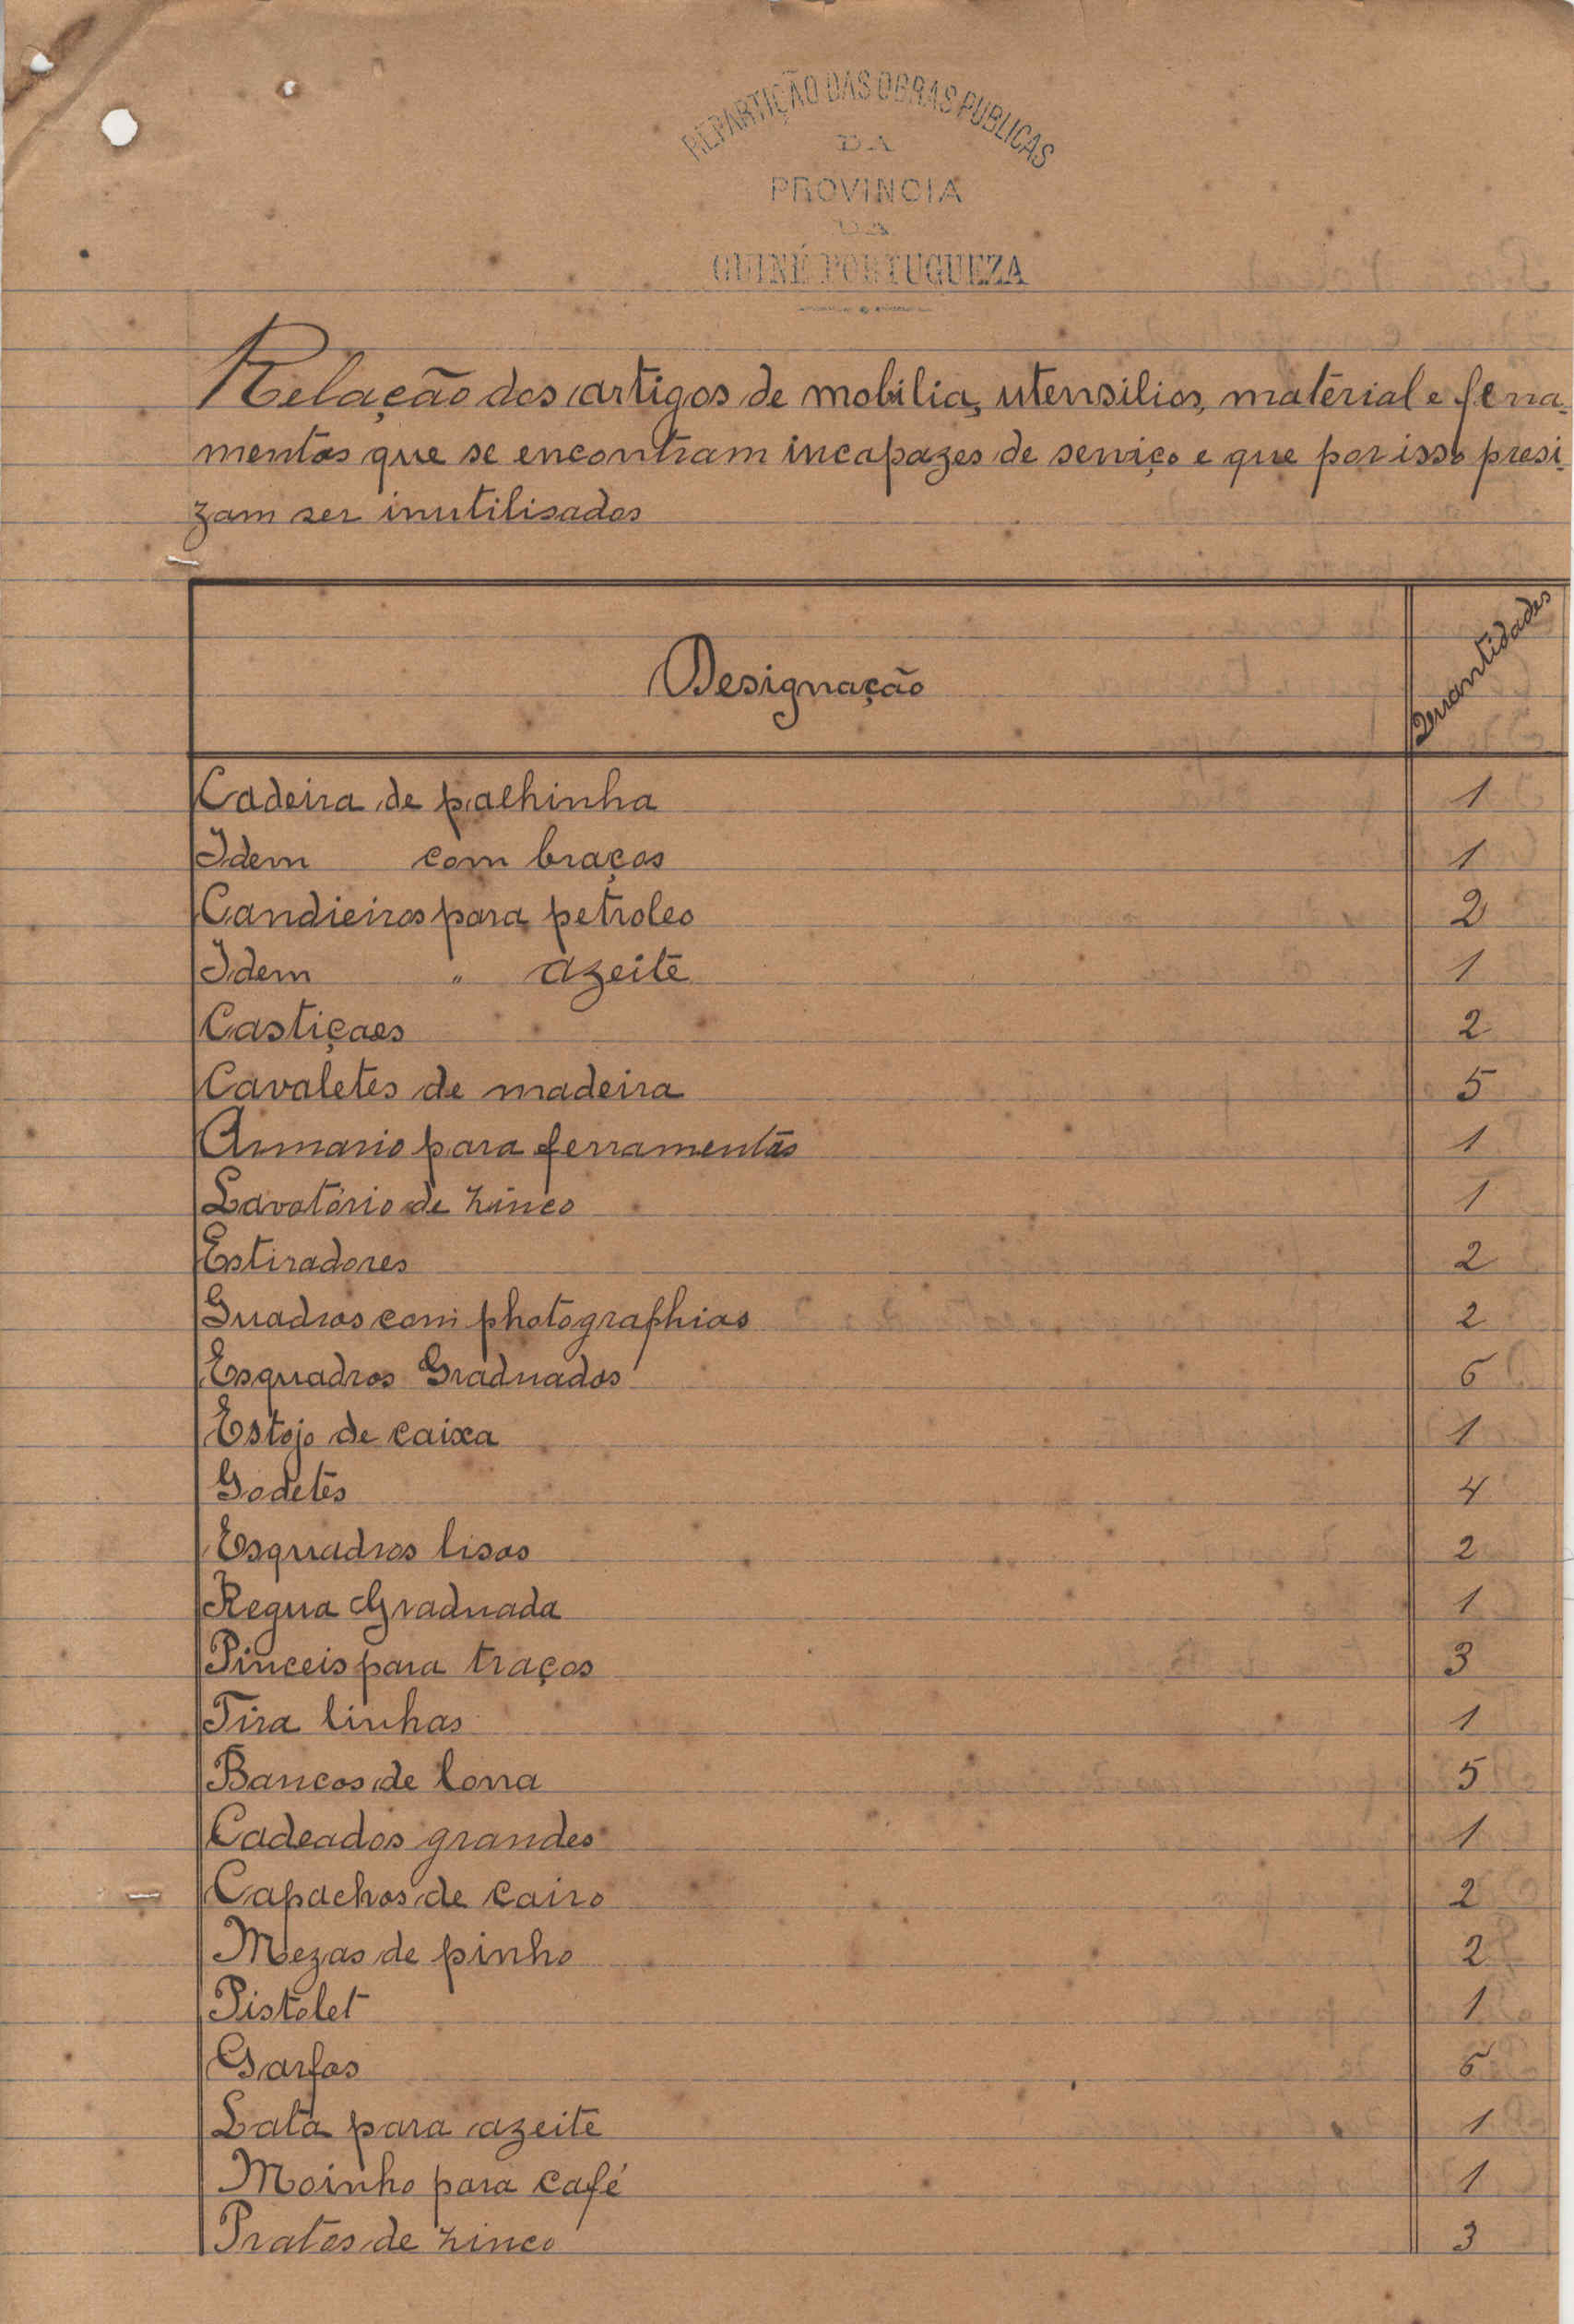 REPARTIÇÃO DAS OBRAS PUBLICAS
DA
PROVINCIA
DA
GUINÉ PORTUGUEZA
Relação dos artigos de mobilia, utensilios, material e ferra-
mentas que se encontram incapazes de serviço e que por isso presi-
zam ser inutilisados
Designação Quantidades
Cadeira de palhinha 1
Idem com braços 1
Candieiros para petroleo 2
Idem " azeite 1
Castiçaes 2
Cavaletes de madeira 5
Armario para ferramentas 1
Lavatório de zinco 1
Estiradores 2
Quadros com photographias 2
Esquadros Graduados 6
Estojo de caixa 1
Godetes 4
Esquadros lisos 2
Regua Graduada 1
Pinceis para traços 3
Tira linhas 1
Bancos de lona 5
Cadeados grandes 1
Capachos de cairo 2
Mezas de pinho 2
Pistolet 1
Garfos 6
Lata para azeite 1
Moinho para café 1
Pratos de zinco 3